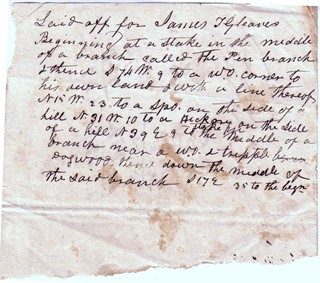 Laid off for James T Gleaves
Beginning at a Stake in the middle
of a branch called the Pen branch
& thence S 74 W. 9 to a W.O. corner to
his own Land & with a line thereof
N 15 W. 23. to a Spo. on the side of a
hill N 31 W. 10 to a Hickory on the side
of a hill N 39 E 9 to the middle of a
branch near a W.O. &
Dogwood thence down the middle of
the said branch S 17 E 35 to the begn